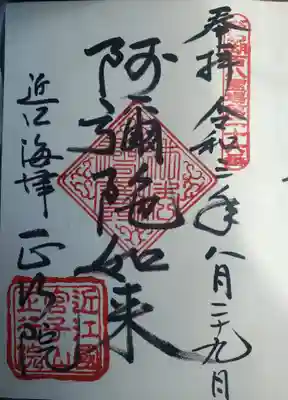 奉拝 令和三年八月二十九日
阿彌陀如来
近江海津 正行院
近江國
正行院